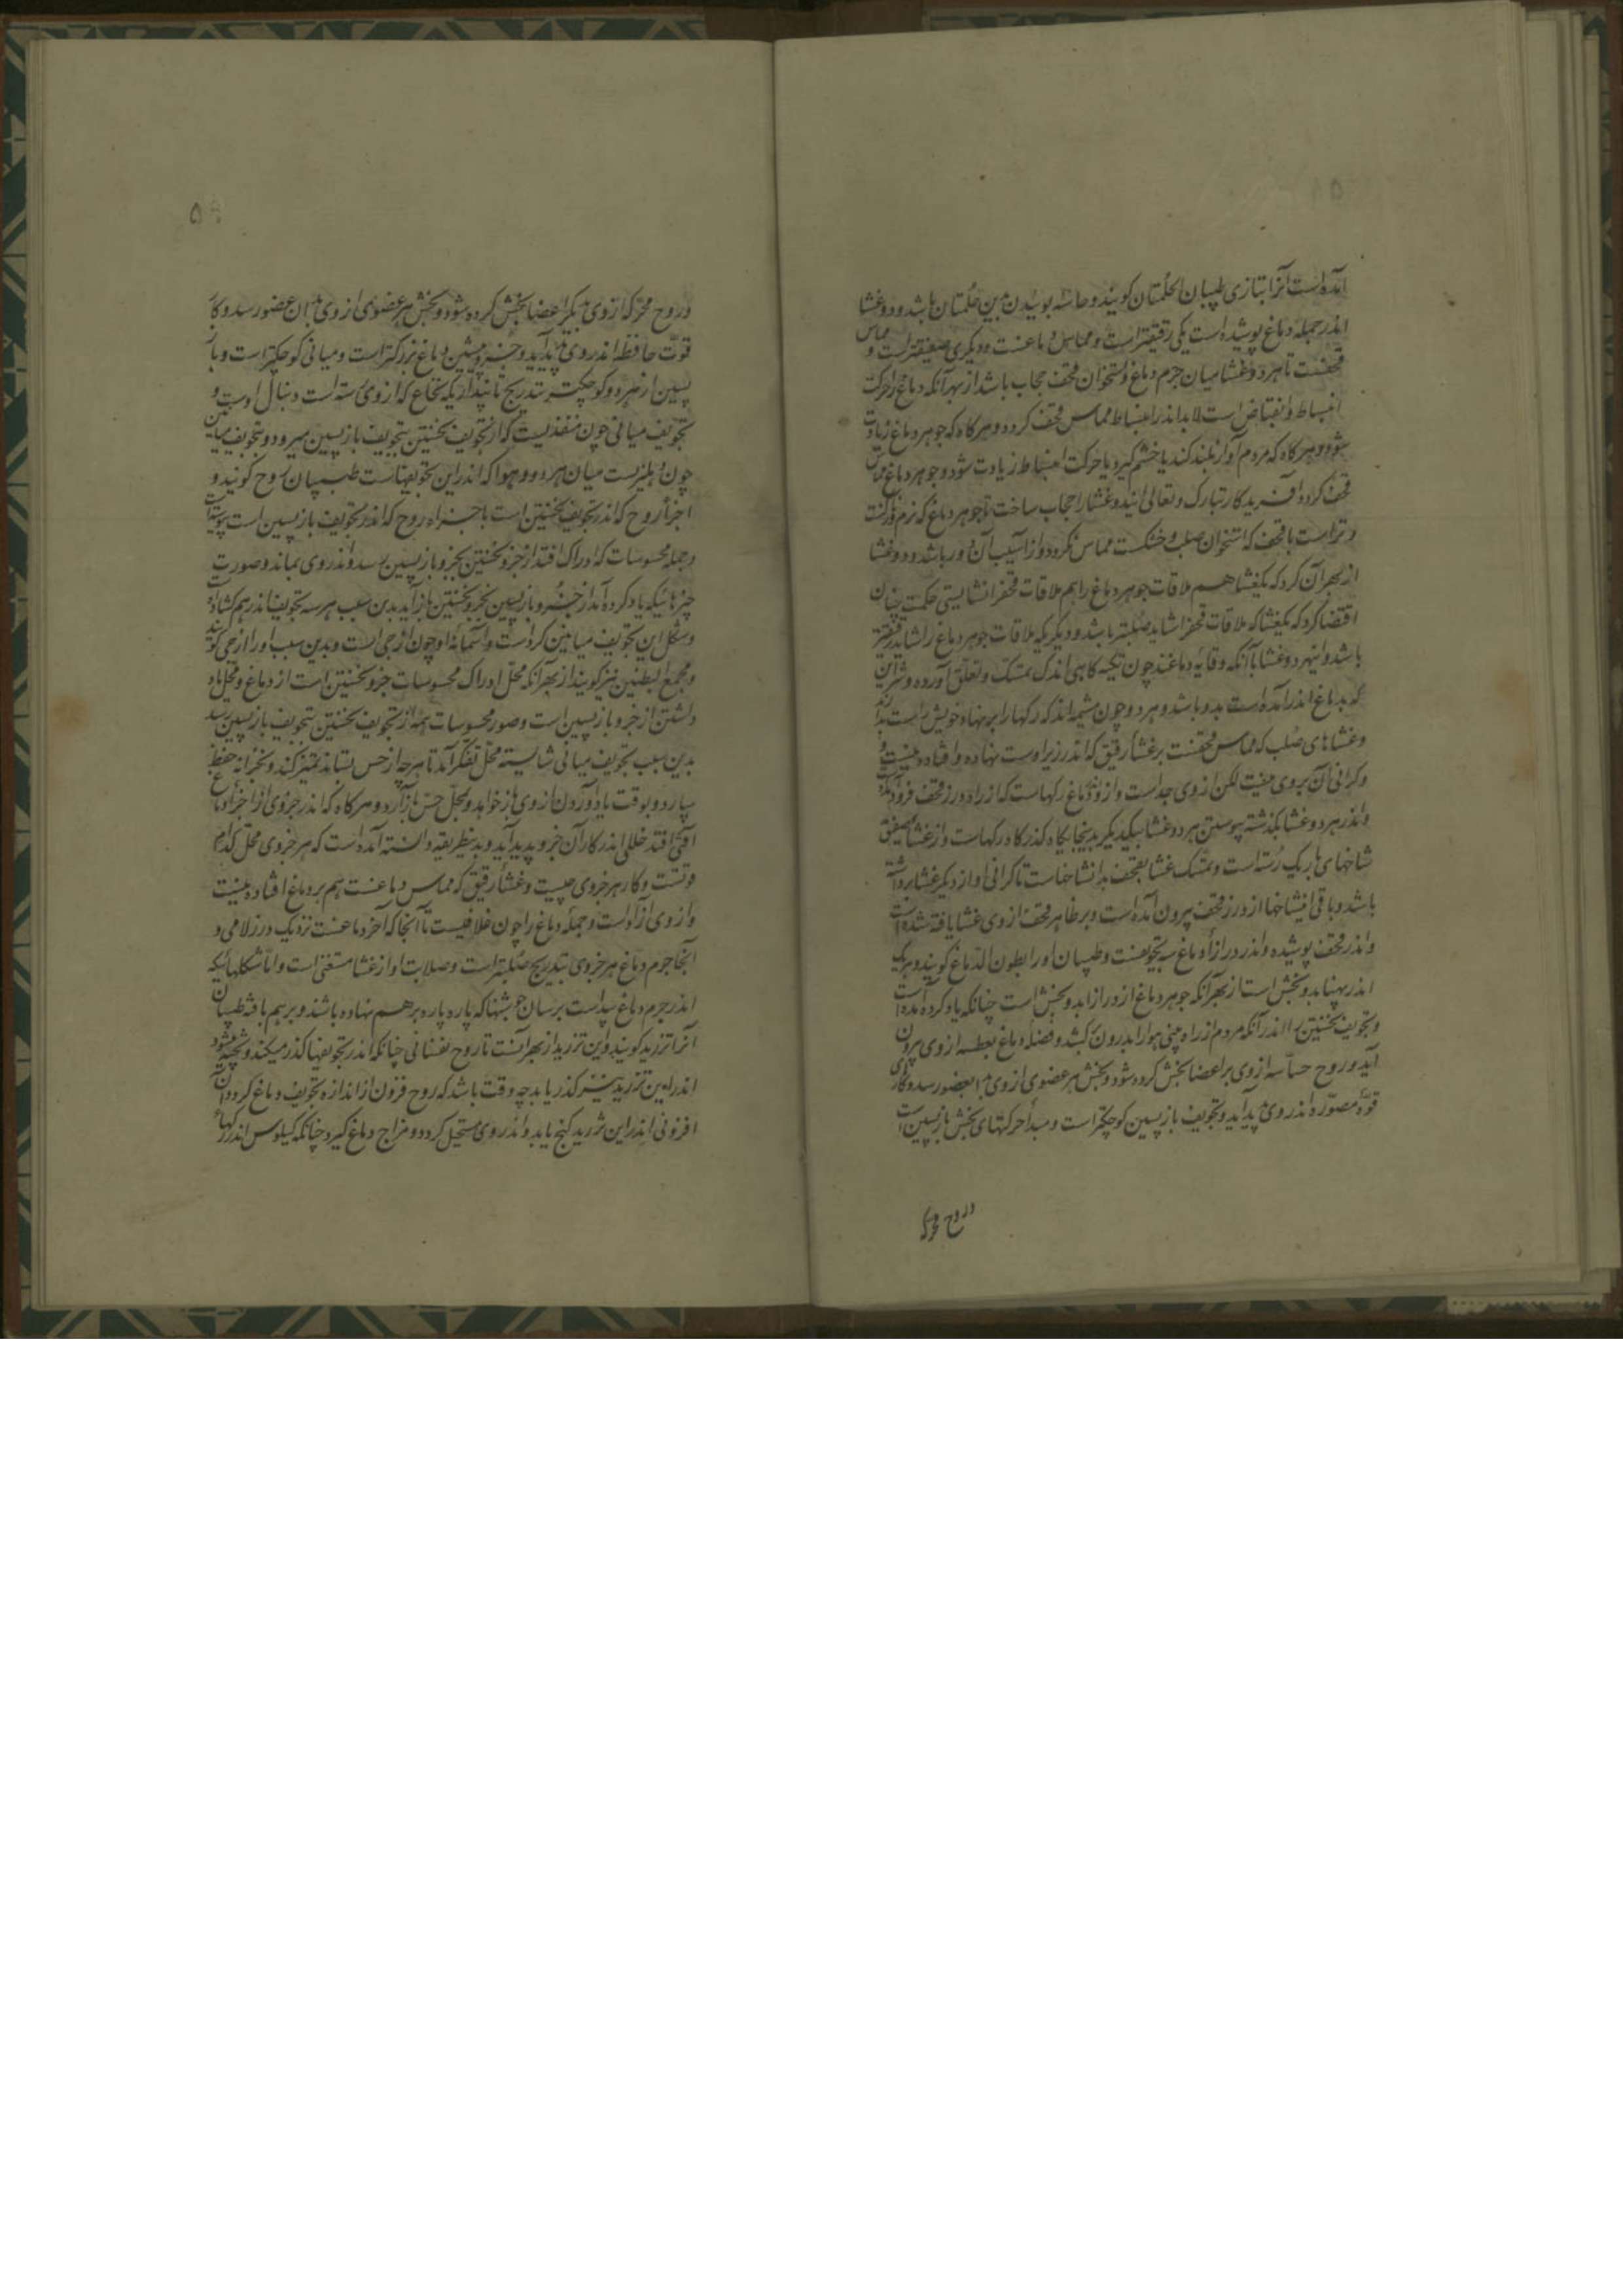 آمده است آنرا بتازی طبیبان الحلمتان کویند و حاسه بوییدن بدین حلمتان باشد و دو غشا
اندر جمله دماغ پوشیده است یکی رقیقتر است و مماس دماغست و دیکری صفیقتر است و مماس
قحفست تا هر دو غشا میان جرم دماغ و استخوان قحف حجاب باشد از بهر آنکه دماغ را حرکت
انبساط و انقباض است لابد اندر انبساط مماس قحف کردد و هر کاه که جوهر دماغ زیادت
شود و هر کاه که مردم آواز بلند کند یا خشم کیرد یا حرکت انبساط زیادت شود و جوهر دماغ مماس
قحف کردد آفریدکار تبارک و تعالی این دو غشا را حجاب ساخت تا جوهر دماغ که نرم
و تر است با قحف که استخوان صلب و خشکست مماس نکردد و از آسیب آن دور باشد و دو غشا
از بهر آن کرد که یک غشا هم ملاقات جوهر دماغ را هم ملاقات قحف را نشایستی حکمت چنان
اقتضا کرد که یک غشا که ملاقات قحف را شاید صلبتر باشد و دیکر که ملاقات جوهر دماغ را شاید رقیقتر
باشد و این هر دو غشا با آنکه وقایه دماغند چون تکیه کاهی اند که بتمسک و تعلق آورده و شرایین
که بدماغ اندر آمده است بدو باشد و هر دو چون مشیمه اند که رکها را بر نهاد خویش بداند
و غشاهای صلب که مماس قحفست بر غشاء رقیق که اندر زیر اوست نهاده و افتاده نیست و
و کرانی آن بروی نیست لکن از وی جداست و از دماغ رکهاست که از راه درز قحف فرود آمده
و اندر هر دو غشا بکذشته پیوستن هر دو غشا بیکدیکر بدینجایکاه کذرکاه رکهاست و از غشاء صفیق
شاخهای باریک رسته است و تمسک غشا بقحف بدان شاخهاست تا کرانی او از دیکر غشا برداشته
باشد و باقی این شاخها از درز قحف بیرون آمده است و بر ظاهر قحف از وی غشا بافته شده است
و اندر قحف پوشیده و اندر درازای دماغ سه تجویفست و طبیبان او را بطون الدماغ کویند و هر یک
اندر پهنا بدو بخش است از بهر آنکه جوهر دماغ از درازا بدو بخش است چنانکه یاد کرده آمده است
و تجویف نخستین را اندر آنکه مردم از راه بینی هوا را بدرون کشد و فضله دماغ بعطسه از وی بیرون
آید و روح حساسه از وی بر اعضا بخش کرده شود و بخش هر عضوی از وی بدان عضو رسد و کارهای
قوة مصوره اندر وی پدید آید و تجویف بازپسین کوچکتر است و مبدأ حرکتهای بخش بازپسین است
و روح محرکه
۵۹
و روح محرکه از وی بدیکر اعضا بخش کرده شود و بخش هر عضوی از وی بدان عضو رسد و کار
قوت حافظه اندر وی پدید آید و جزو پیشین دماغ بزرکتر است و میانی کوچکتر است و باز
پسین از هر دو کوچکتر بتدریج تا پنداری که نخاع که از وی رسته است دنبال اوست و
تجویف میانی چون منفذیست که از تجویف نخستین بتجویف بازپسین میرود و تجویف میانین
چون دهلیزیست میان هر دو و هوا که اندر این تجویفهاست طبیبان روح کویند و
اجزاء روح که اندر تجویف نخستین است با جزاء روح که اندر تجویف بازپسین است پیوسته است
و جمله محسوسات که ادراک افتد از جزو نخستین بجزو بازپسین رسد و اندر وی بماند و صورت
چیزهائیکه یاد کرده آمد از جزو بازپسین بجزو نخستین باز آید بدین سبب هر سه تجویف اندر هم کشاده
و شکل این تجویف میانین کرد است و آسمانه او چون ازجی است و بدین سبب او را ازجی کویند
و مجمع البطنین نیز کویند از بهر آنکه محل ادراک محسوسات جزو نخستین است از دماغ و محل یاد
داشتن از جزو بازپسین است و صور محسوسات همه از تجویف نخستین بتجویف بازپسین رسد
بدین سبب تجویف میانی شایسته محل تفکر آمد تا هر چه از حس بستاند تمیز کند و بخزانه حفظ
سپارد و بوقت یاد آوردن از وی باز خواهد و بمحل حس باز آرد و هر کاه که اندر جزوی از اجزاء دماغ
آفتی افتد خللی اندر کار آن جزو پدید آید و بدینطریقه دانسته آمده است که هر جزوی محل کدام
قوتست و کار هر جزوی چیست و غشاء رقیق که مماس دماغست هم بر دماغ افتاده نیست
و از وی آزاد است و جمله دماغ را چون غلافیست تا آنجا که آخر دماغست نزدیک درز لامی و
آنجا جرم دماغ هر جزوی بتدریج صلبتر است و صلابت او از غشا مستغنی است و اما شکلهائیکه
اندر جرم دماغ پیداست برسان جوشنها که پاره پاره بر هم نهاده باشند و بر هم بافته طبیبان
آنرا تزرید کویند و این تزرید از بهر آنست تا روح نفسانی چنانکه اندر تجویفها کذر میکند و پخته میشود
اندر این تزرید نیز کذر یابد چه وقت باشد که روح فزون از اندازه تجویف دماغ کردد آن
افزونی اندر این تزرید کنج یابد و اندر وی مستحیل کردد و مزاج دماغ کیرد چنانکه کیلوس اندر رکهاء